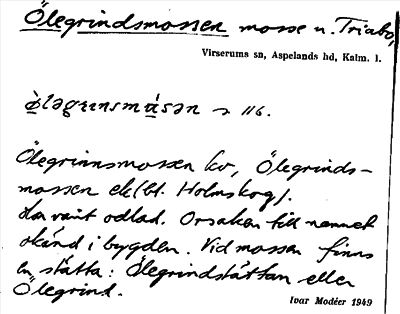 Ölegrindsmossen mosse n. Triabo,
Virserums sn, Aspelands hd, Kalm. l.
s 116.
Ölegrinnsmossen kv, Ölegrinds-
mossen ek (bt. Holmskog).
Har varit odlad. Orsaken till namnet
okänd i bygden. Vid mossen finns
en slätta: Ölegrindslättan eller
Ölegrind.
Ivar Modéer 1949